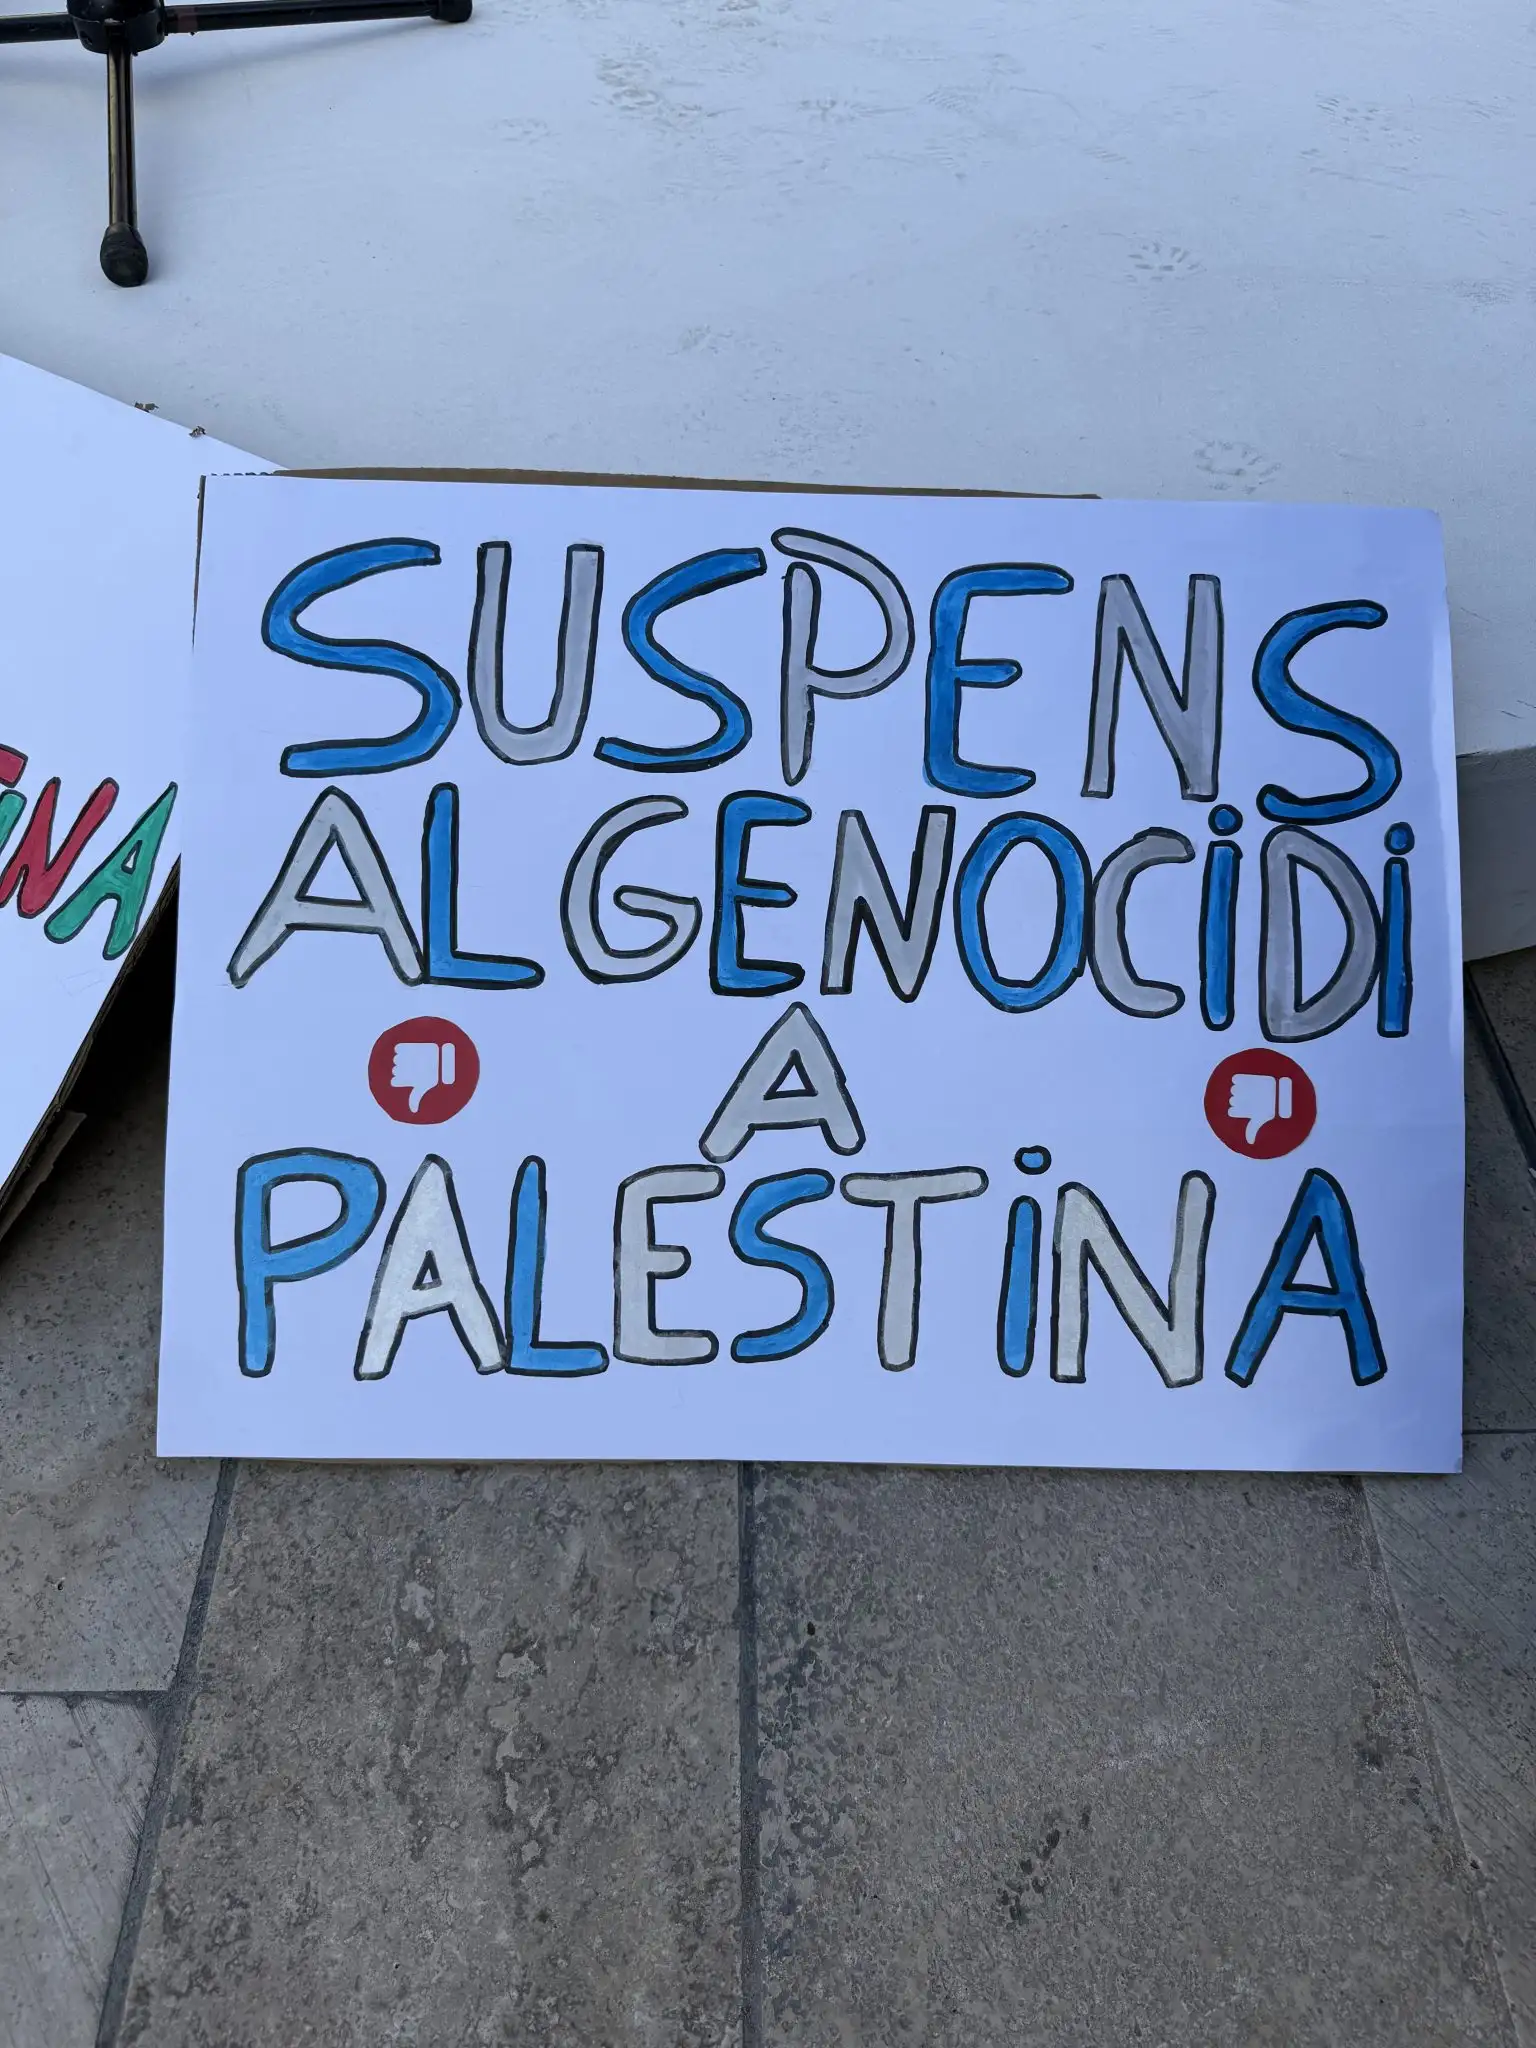 SUSPENS
AL GENOCIDI
A
PALESTINA